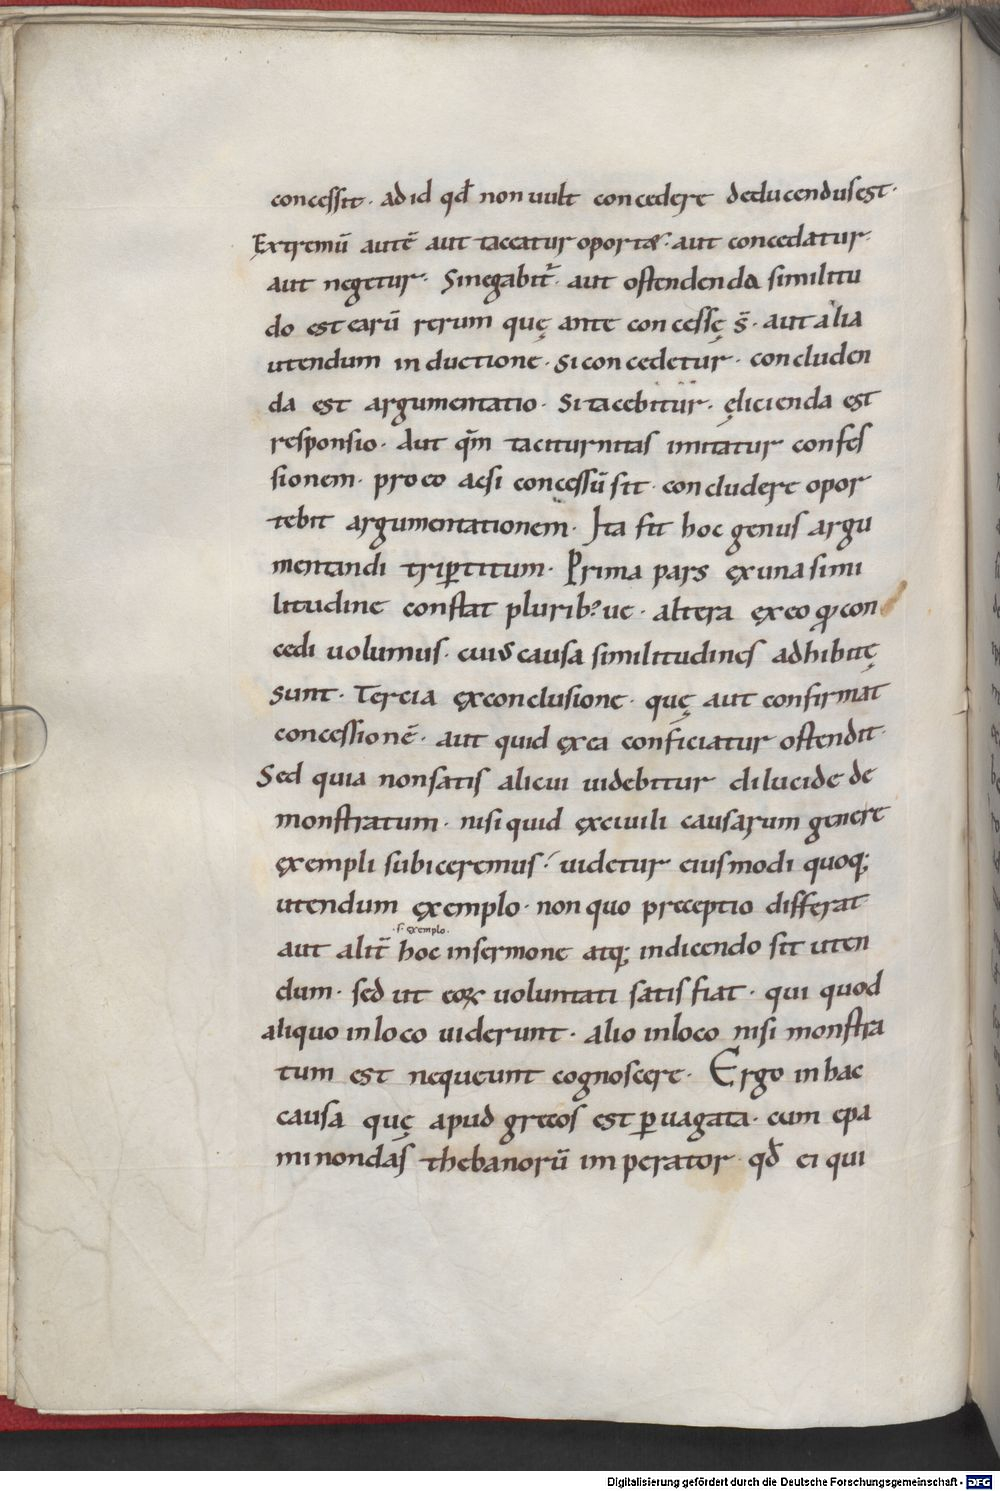 concessit · ad id qđ non uult concedere deducendus est ·
Extremū autē aut taceatur oportæ · aut concedatur ·
aut negetur · Si negabit᷒ · aut ostendenda similitu
do est earū rerum quę ante concessę s̄ · aut alia
utendum inductione · Si concedetur · concluden
da est argumentatio · Si tacebitur · ęlicienda est
responsio · Aut qm̄ taciturnitas imitatur confes
sionem · pro eo acsi concessū sit · concludere opor
tebit argumentationem · Ita fit hoc genus argu
mentandi tripꝑtitum · Prima pars ęx una simi
litudine constat pluribꝰ ue · altera ęx eo qđ con
cedi uolumus · cuius causa similitudines adhibitę
sunt · Tercia ęx conclusione · quę aut confirmat
concessionē · aut quid ęx ea conficiatur ostendit ·
Sed quia non satis alicui uidebitur dilucide de
monstratum · nisi quid ęx ciuili causarum genere
ęxempli subiceremus · uidetur eiusmodi quoq;
utendum ęxemplo · non quo preceptio differat
· s· ęxemplo ·
aut alit̄ hoc in sermone atq; in dicendo sit uten
dum · sed ut eoꝝ uoluntati satis fiat · qui quod
aliquo in loco uiderunt · alio in loco nisi monstra
tum est nequeunt cognoscere · Ergo in hac
causa quę apud grecos est ꝑuagata · cum epa
minondas thebanorū imperator · qđ ei qui
Digitalisierung gefördert durch die Deutsche Forschungsgemeinschaft - DFG